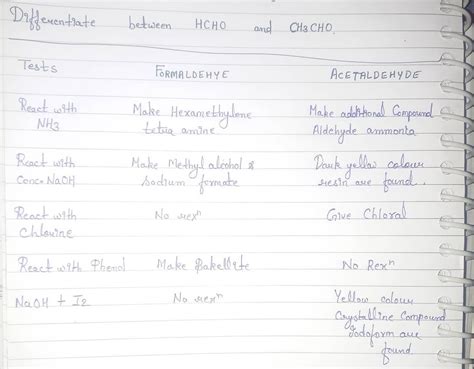 Differentiate between HCHO and CH3CHO.
Tests FORMALDEHYE ACETALDEHYDE
React with Make Hexamethylene Make additional Compound
NH3 tetra amine Aldehyde ammonia
React with Make Methyl alcohol & Dark yellow colour
Conc NaOH sodium formate resin are found.
React with No rexn Give Chloral
Chlorine
React with Phenol Make Bakellite No Rexn
NaOH + I2 No rexn Yellow colour
Crystalline Compound
Iodoform are
found